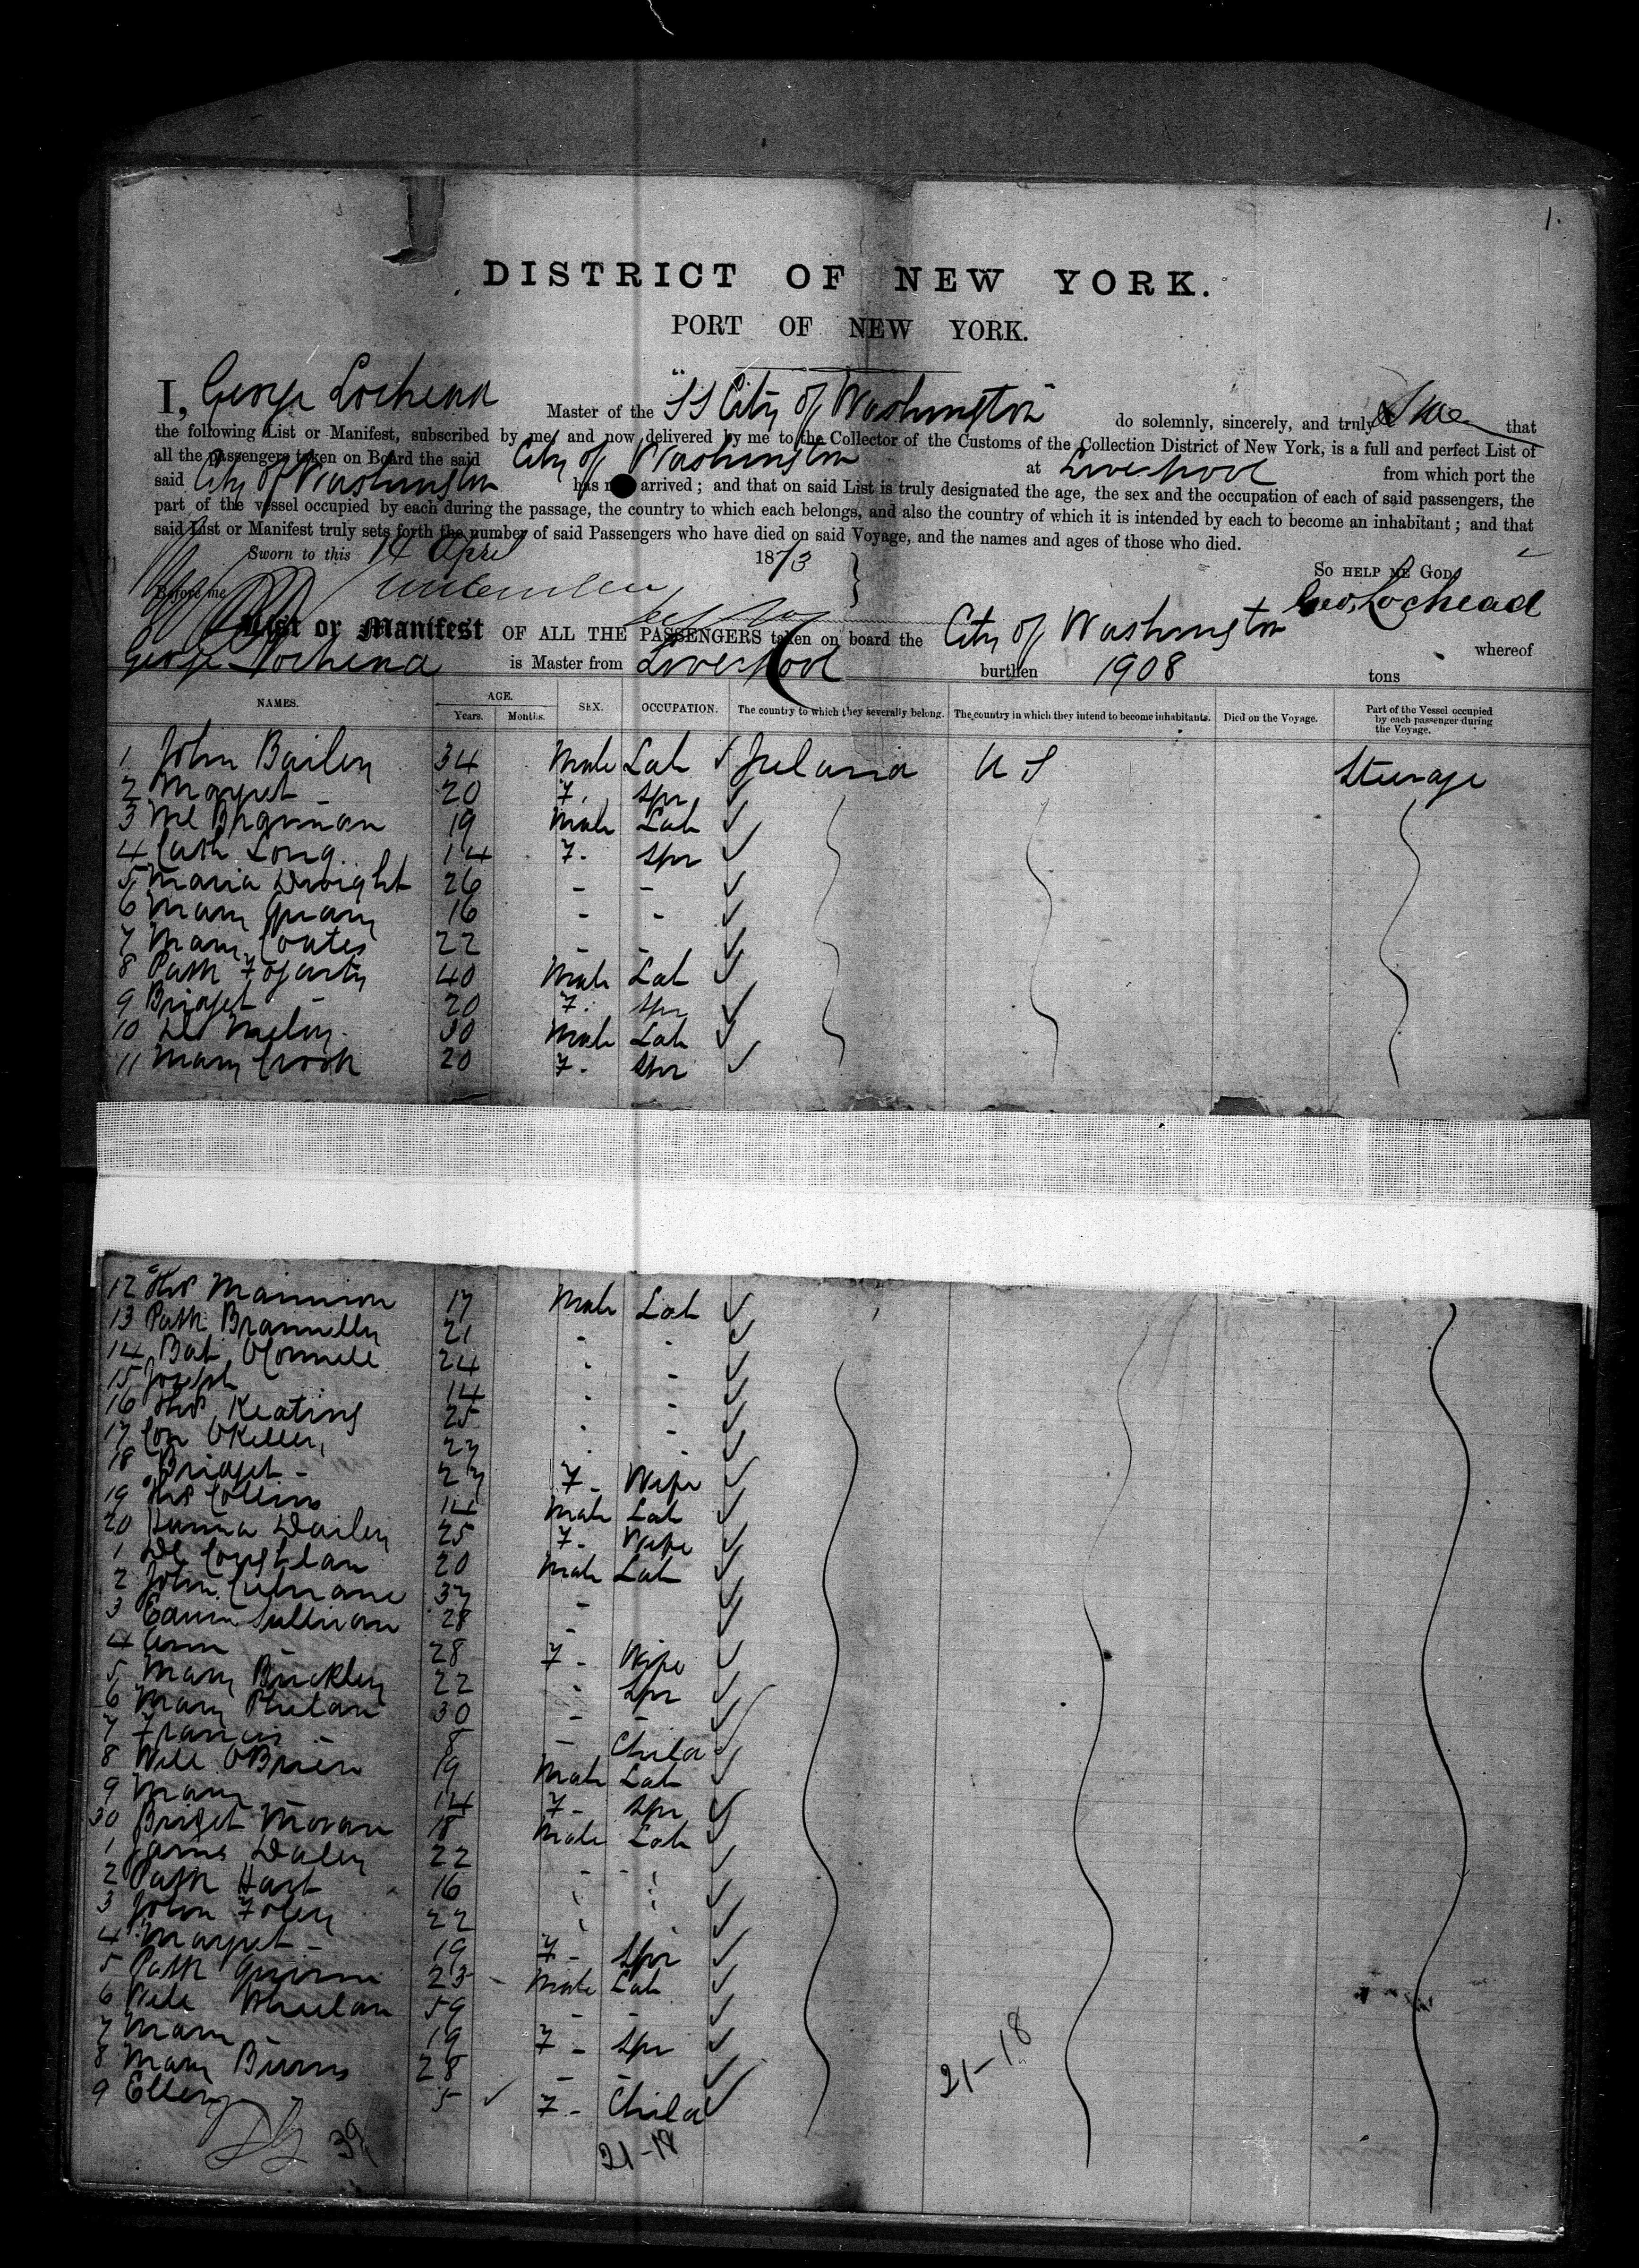 1.
DISTRICT OF NEW YORK.
PORT OF NEW YORK.
I, George Lochead Master of the "SS City of Washington" do solemnly, sincerely, and truly Swear that
the following List or Manifest, subscribed by me, and now delivered by me to the Collector of the Customs of the Collection District of New York, is a full and perfect List of
all the passengers taken on Board the said City of Washington at Liverpool from which port the
said City of Washington has arrived; and that on said List is truly designated the age, the sex and the occupation of each of said passengers, the
part of the vessel occupied by each during the passage, the country to which each belongs, and also the country of which it is intended by each to become an inhabitant; and that
said List or Manifest truly sets forth the number of said Passengers who have died on said Voyage, and the names and ages of those who died.
Sworn to this 14 April 1873
So help me God,
Before me
Geo. Lochead
List or Manifest OF ALL THE PASSENGERS taken on board the City of Washington whereof
George Lochead is Master from Liverpool burthen 1908 tons
NAMES. AGE. Years. Months. SEX. OCCUPATION. The country to which they severally belong. The country in which they intend to become inhabitants. Died on the Voyage. Part of the Vessel occupied by each passenger during the Voyage.
1 John Bailey 34 Male Lab Ireland U S Steerage
2 Margret - 20 F. Spr
3 Ml Brannan 19 Male Lab
4 Cath Long 14 F. Spr
5 Maria Dwight 26 - -
6 Mary 16 - -
7 Mary Coates 22 - -
8 Patk Fogarty 40 Male Lab
9 Bridget - 20 F. Spr
10 30 Male Lab
11 Mary Crook 20 F. Spr
12 Thos Mannion 17 Male Lab
13 Patk Brannelly 21 - -
14 Bat OConnell 24 - -
15 Joseph 14 - -
16 Thos Keating 25 - -
17 Con 27 - -
18 Bridget - 27 F - Wife
19 Thos Collins 14 Male Lab
20 Hanna Dailey 25 F - Wife
1 Coughlan 20 Male Lab
2 John 37 -
3 Edwin Sullivan 28 -
4 Ann - 28 F - Wife
5 Mary Buckley 22 - Spr
6 Mary Phelan 30 - -
7 Francis - 8 - Child
8 Will OBrien 19 Male Lab
9 Mary - 14 F - Spr
30 Bridget Moran 18 Male Lab
1 James Daley 22 - -
2 Patk Hart 16
3 John Foley 22
4 Margret - 19 F - Spr
5 Patk Quinn 23 - Male Lab
6 Will Wheelan 59 - -
7 Mary - 19 F - Spr
8 Mary Burns 28 - -
9 Ellen 5 F - Child
21-18
39
21-18